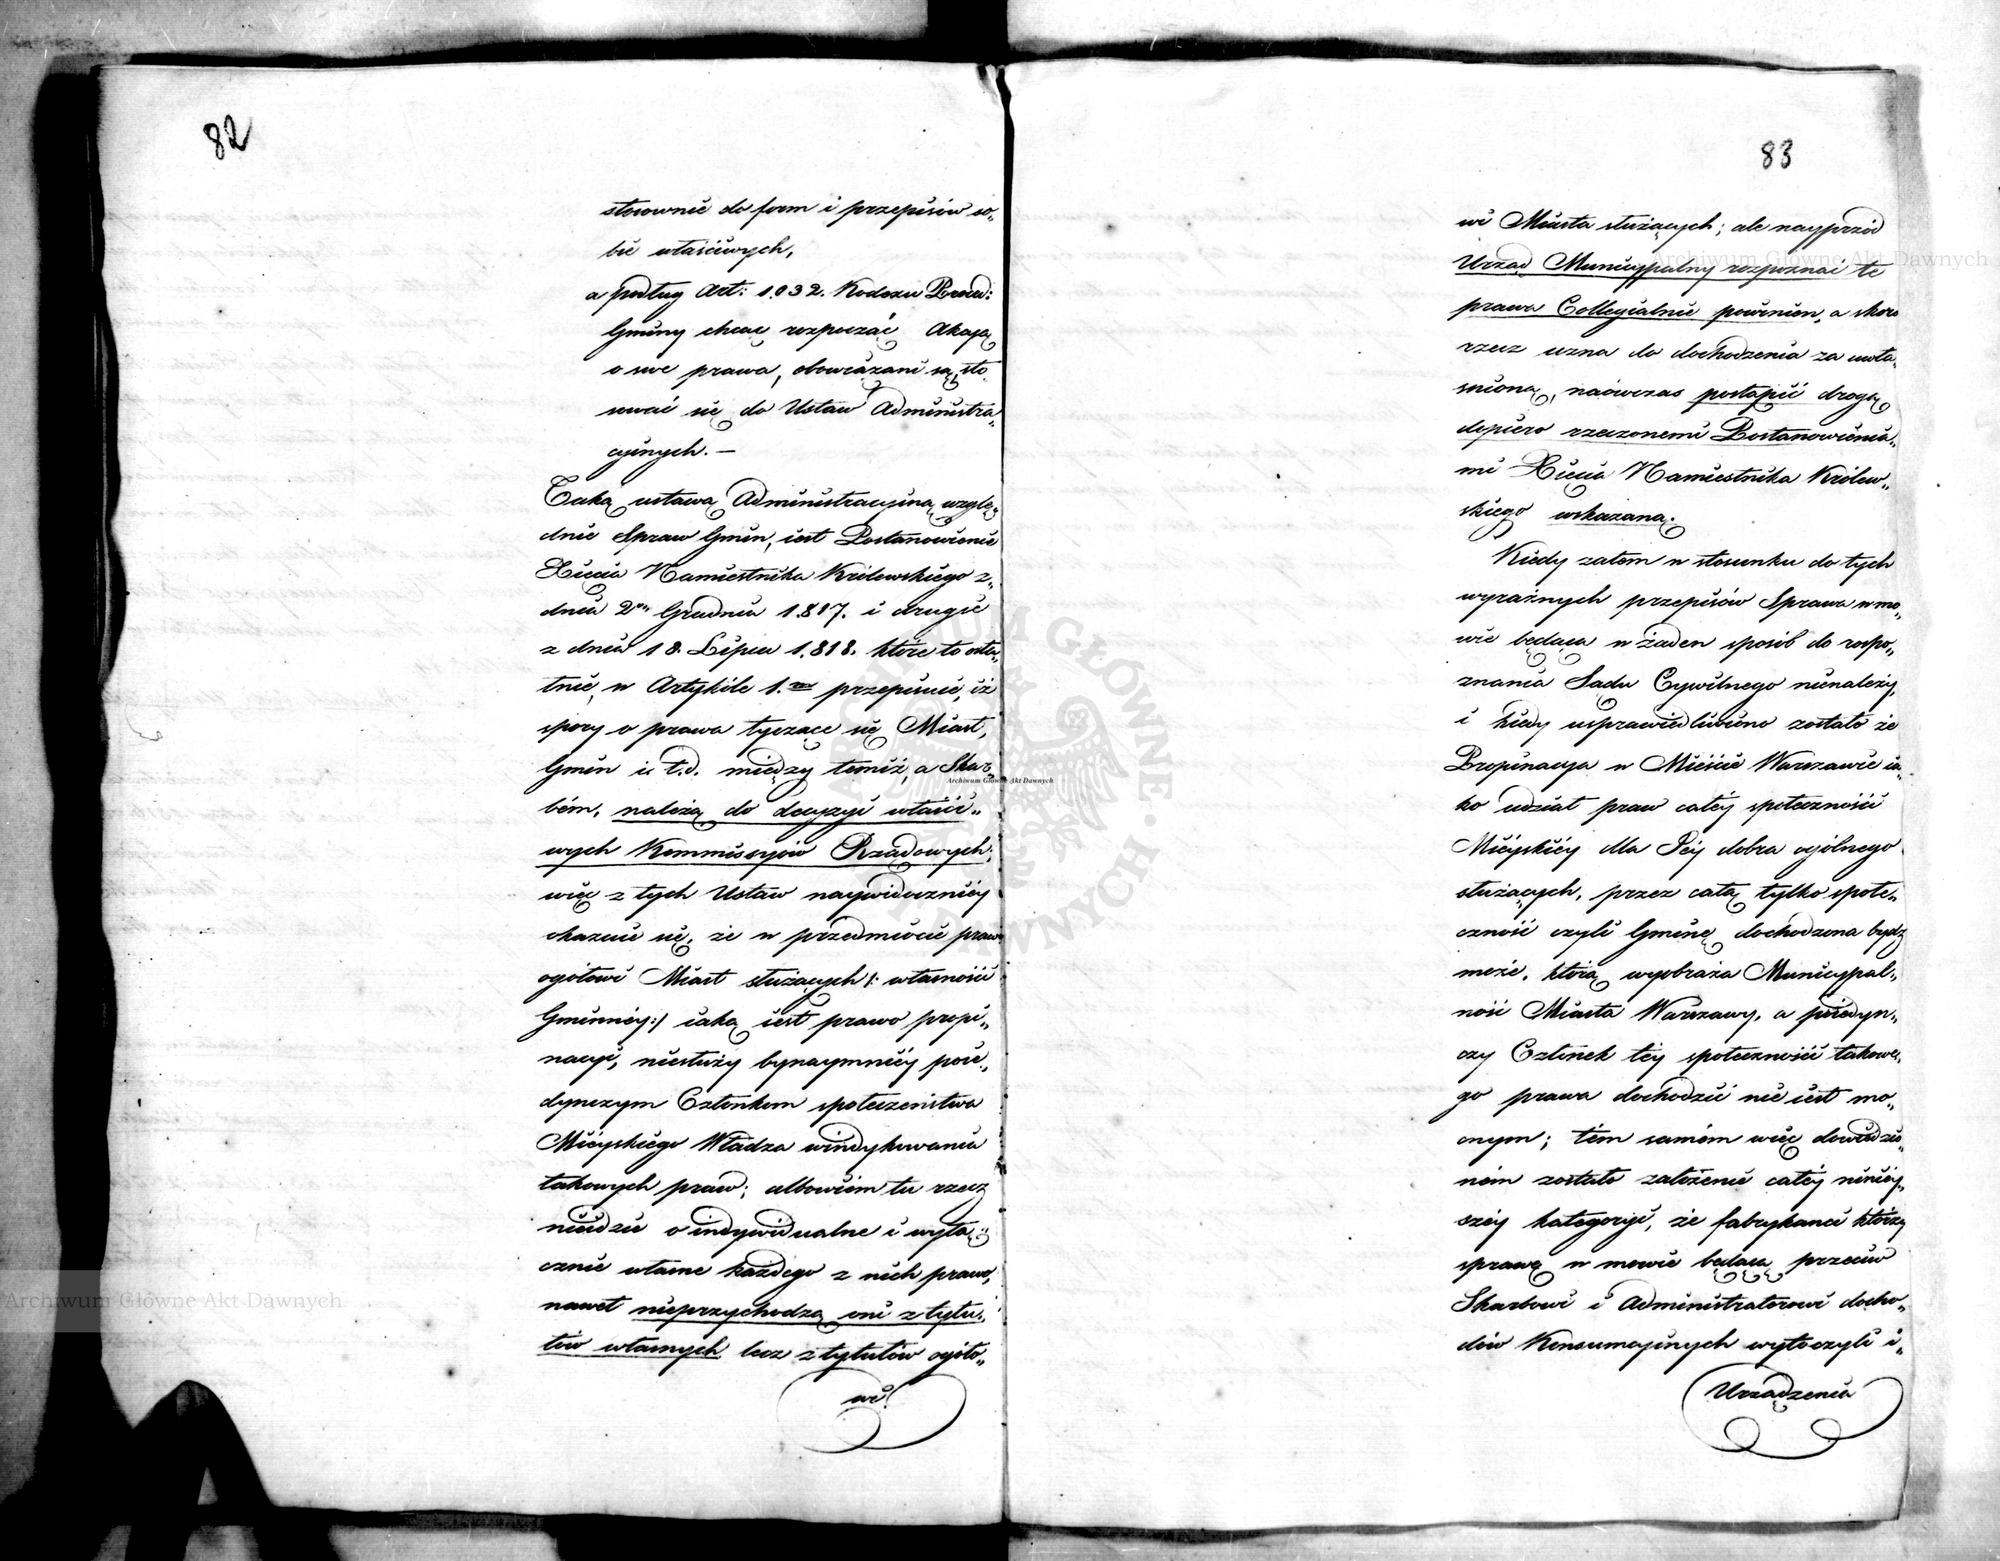 82
stosownie do form i przepisów so„
bie właściwych,
a podług Art: 1.032. Kodexu Proced:
Gminy chcąc rozpocząć Akcyą
o swe prawa, obowiązani są sto„
sować się do Ustaw Administra„
cyinych. —
Taką ustawą Administracyiną wzglę„
dnie Spraw Gmin, iest Postanowienie
Xięcia Namiestnika Królewskiego z„
dnia 2go Grudnia 1.817. i drugie
z dnia 18. Lipca 1.818. które to osta„
tnie w Artykule 1.m przepisuie, iż
spory o prawa tyczące się Miast,
Gmin i t.d. między temiż, a Skar„
bém, należą do decyzyi właści„
wych Kommissyiów Rządowych;
więc z tych Ustaw naywidoczniéy
okazuie się, że w przedmiocie praw
ogółowi Miast służących /: własność
Gminnéy:/ iaką iest prawo propi„
nacyi, niesłuży bynaymniéy poie„
dynczym Członkom społeczeństwa
Mieyskiego Władza windykowania
takowych praw; albowiem tu rzecz
nieidzie o indywidualne i wyłą„
cznie własne każdego z nich prawo,
nawet nieprzychodzą oni z tytu„
łów własnych lecz z tytułów ogóło„
wi
83
wi Miasta służących; ale nayprzód
Urząd Municypalny rozpoznać te
prawa Collegialnie powinien, a skoro
rzecz uzna do dochodzenia za uwła„
snioną, naówczas postąpić drogą
dopiero rzeczonemi Postanowienia„
mi Xięcia Namiestnika Królew„
skiego wskazaną.
Kiedy zatem w stosunku do tych
wyraźnych przepisów Sprawa w mo„
wie będąca w żaden sposób do rospo„
znania Sądu Cywilnego nienależy,
i kiedy usprawiedliwiono zostało że
Propinacya w Mieście Warszawie ia„
ko udział praw całéy społeczności
Mieyskiéy dla Iéy dobra ogólnego
służących, przez całą tylko społe„
czność czyli Gminę dochodzona bydź
może, którą wyobraża Municypal„
ność Miasta Warszawy, a poiedyn„
czy Członek téy społeczności takowe„
go prawa dochodzić nie iest mo„
cnym; tém samém więc dowiedzio„
ném zostało założenie całéy niniéy„
széy kategoryi, że fabrykanci którzy
sprawę w mowie będącą przeciw
Skarbowi i Administratorowi docho„
dów Konsumcyinych wytoczyli i„
Urządzenia
Archiwum Główne Akt Dawnych
Archiwum Główne Akt Dawnych
Archiwum Główne Akt Dawnych